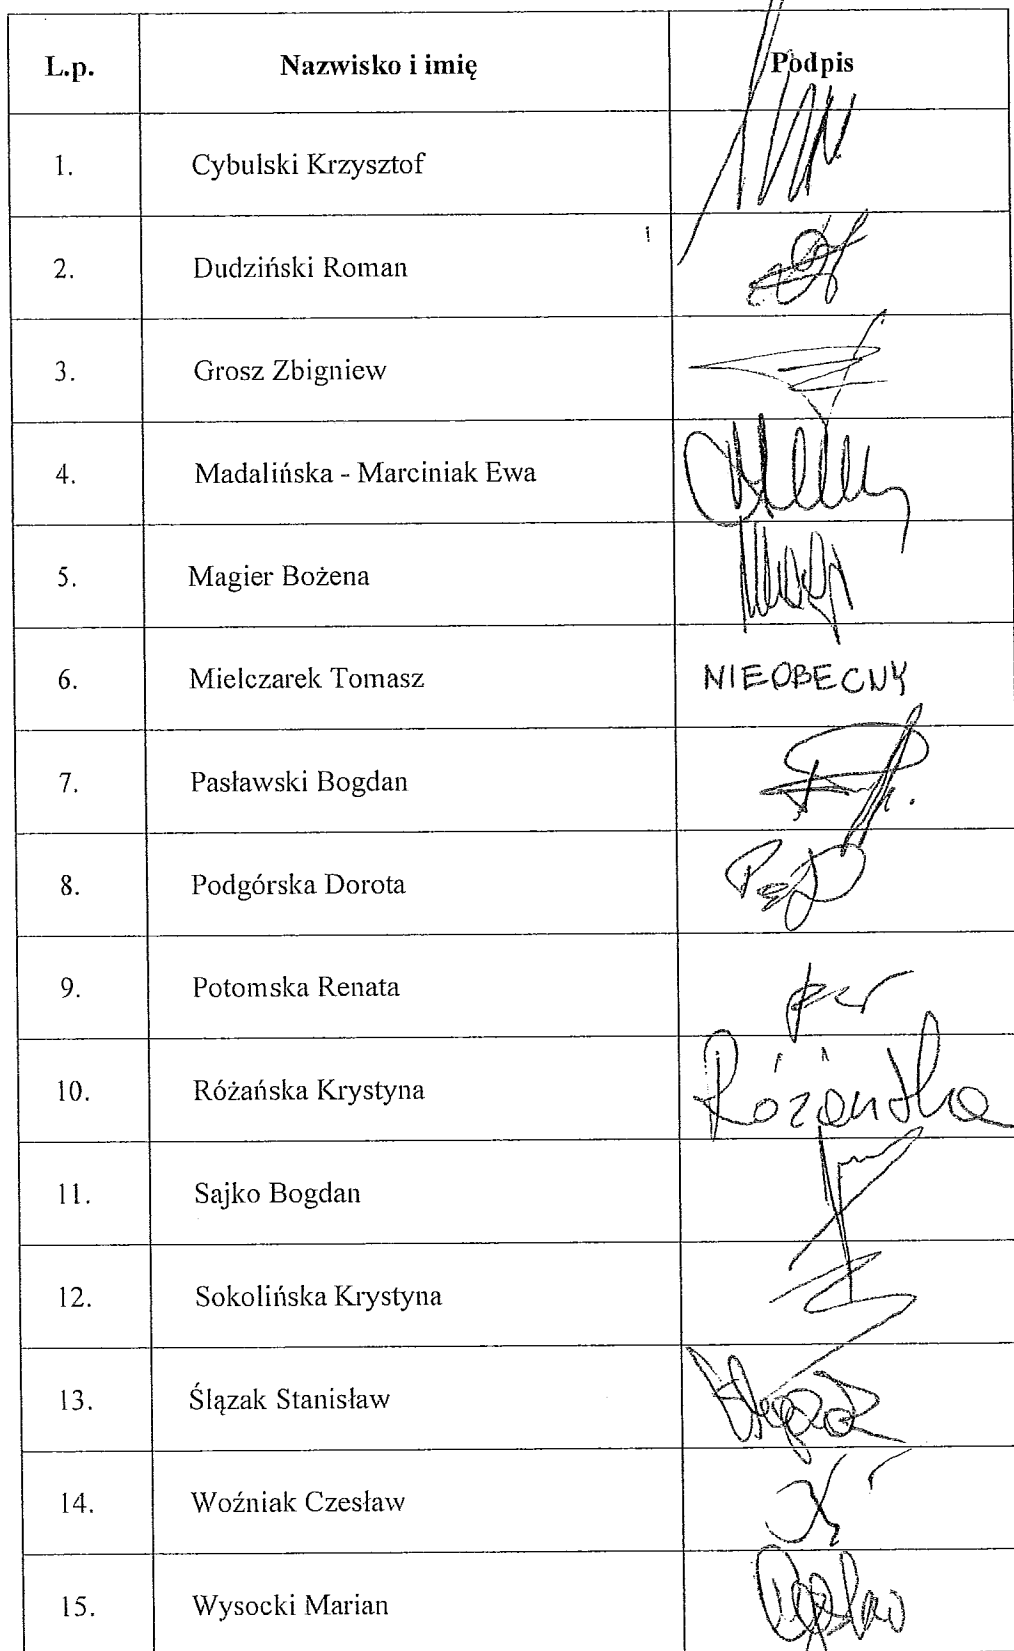 L.p. Nazwisko i imię Podpis
1. Cybulski Krzysztof
2. Dudziński Roman
3. Grosz Zbigniew
4. Madalińska - Marciniak Ewa
5. Magier Bożena
6. Mielczarek Tomasz NIEOBECNY
7. Pasławski Bogdan
8. Podgórska Dorota
9. Potomska Renata
10. Różańska Krystyna Różańska
11. Sajko Bogdan
12. Sokolińska Krystyna
13. Ślązak Stanisław
14. Woźniak Czesław
15. Wysocki Marian